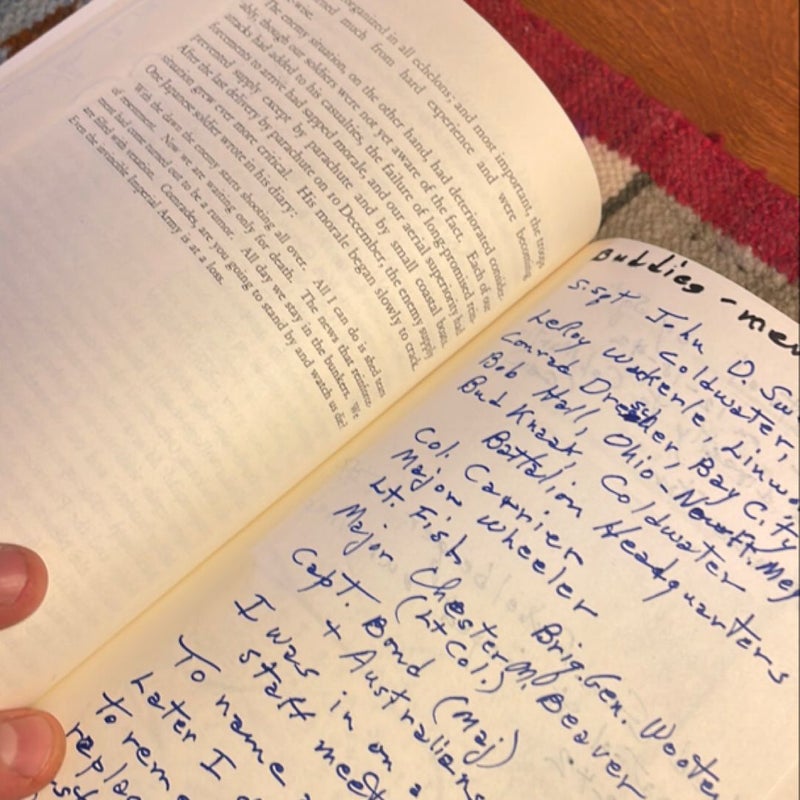 organized in all echelons; and most important, the troops
had learned much from hard experience and were becoming
wise.
The enemy situation, on the other hand, had deteriorated consider-
ably, though our soldiers were not yet aware of the fact. Each of our
attacks had added to his casualties, the failure of long-promised rein-
forcements to arrive had sapped morale, and our aerial superiority had
prevented supply except by parachute and by small coastal boats.
After the last delivery by parachute on 10 December, the enemy supply
situation grew ever more critical. His morale began slowly to crack.
One Japanese soldier wrote in his diary:
With the dawn the enemy starts shooting all over. All I can do is shed tears
of resentment. Now we are waiting only for death. The news that reinforce-
ment had come turned out to be a rumor. All day we stay in the bunkers. We
are filled with vexation. Comrades, are you going to stand by and watch us die?
Even the invincible Imperial Army is at a loss.
Buddies - me
S-Sgt John D. Sw
Coldwater,
LeRoy Wakerle, Linwo
Conrad Dresher, Bay City
Bob Hall, Ohio - Now Ft. Mey
Bud Knaak, Coldwater
Battalion Headquarters
Col. Carrier
Major Wheeler
Lt. Fish
Major Chester M. Beaver
(Lt Col.) Brig. Gen. Wooten
Capt. Bond (Maj)
+ Australians
I was in on a
staff meet
To name
Later I
to rem
replac